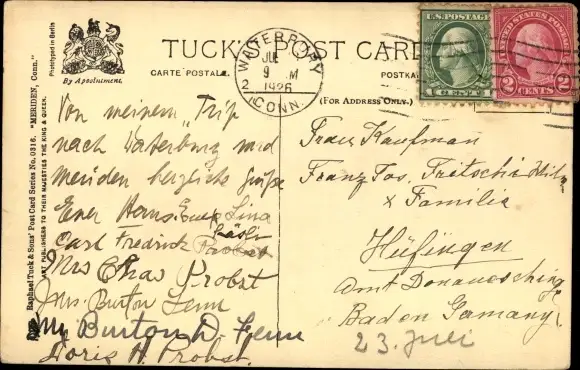 TUCK'S POST CARD
CARTE POSTALE
POSTKA
(FOR ADDRESS ONLY.)
By Appointment.
Phototyped in Berlin
Raphael Tuck & Sons' Post Card Series No. 0316. "MERIDEN, Conn."
ART PUBLISHERS TO THEIR MAJESTIES THE KING & QUEEN.
WATERBURY
JUL
9 M
2 1926
CONN.
U.S. POSTAGE
1 CENT 1
UNITED STATES POSTAGE
2 CENTS 2
Von meinem "Trip
nach Waterbury und
Meriden herzliche Grüße
Euer Hans. Lina
Carl Friedrich
Mrs Chas Probst
Mrs. Burton Fenn
Burton D. Fenn
Doris H. Probst.
Frau Kaufman
Franz Jos. Fritschi
& Familie
Hüfingen
Amt Donaueschingen
Baden Gemany
23. Juli